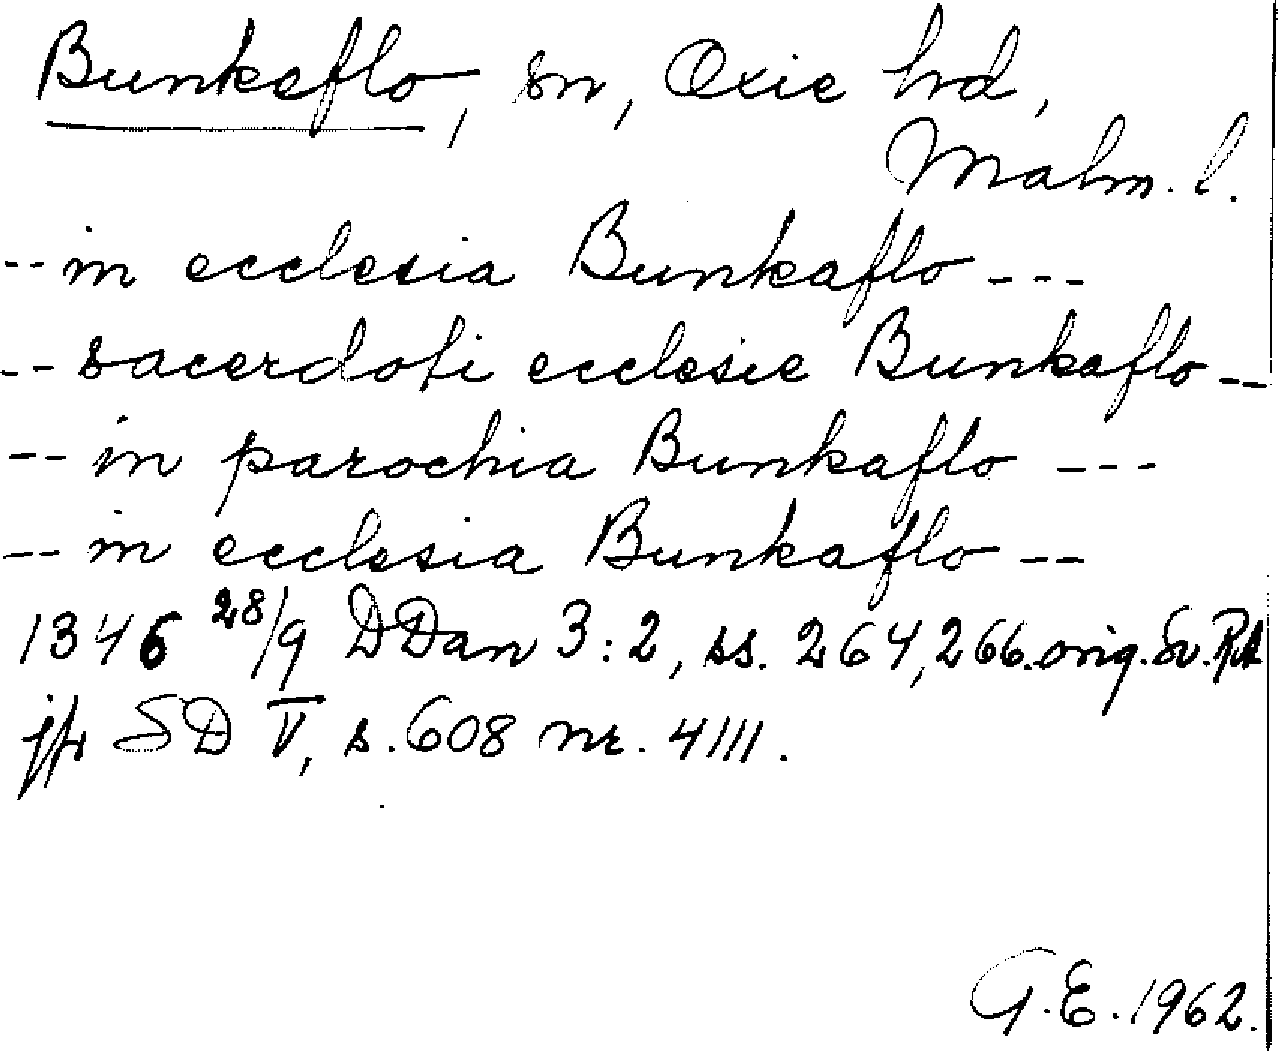 Bunkeflo, sn, Oxie hd,
Malm. l.
-- in ecclesia Bunkaflo ---
-- sacerdoti ecclesie Bunkaflo --
-- in parochia Bunkaflo ---
-- in ecclesia Bunkaflo --
1346 28/9 DDan 3:2, ss. 264, 266. orig. Sv. RA
jfr SD V, s. 608 nr. 4111.
G.E. 1962.